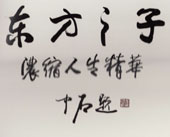 东方之子
浓缩人生精華
十石题